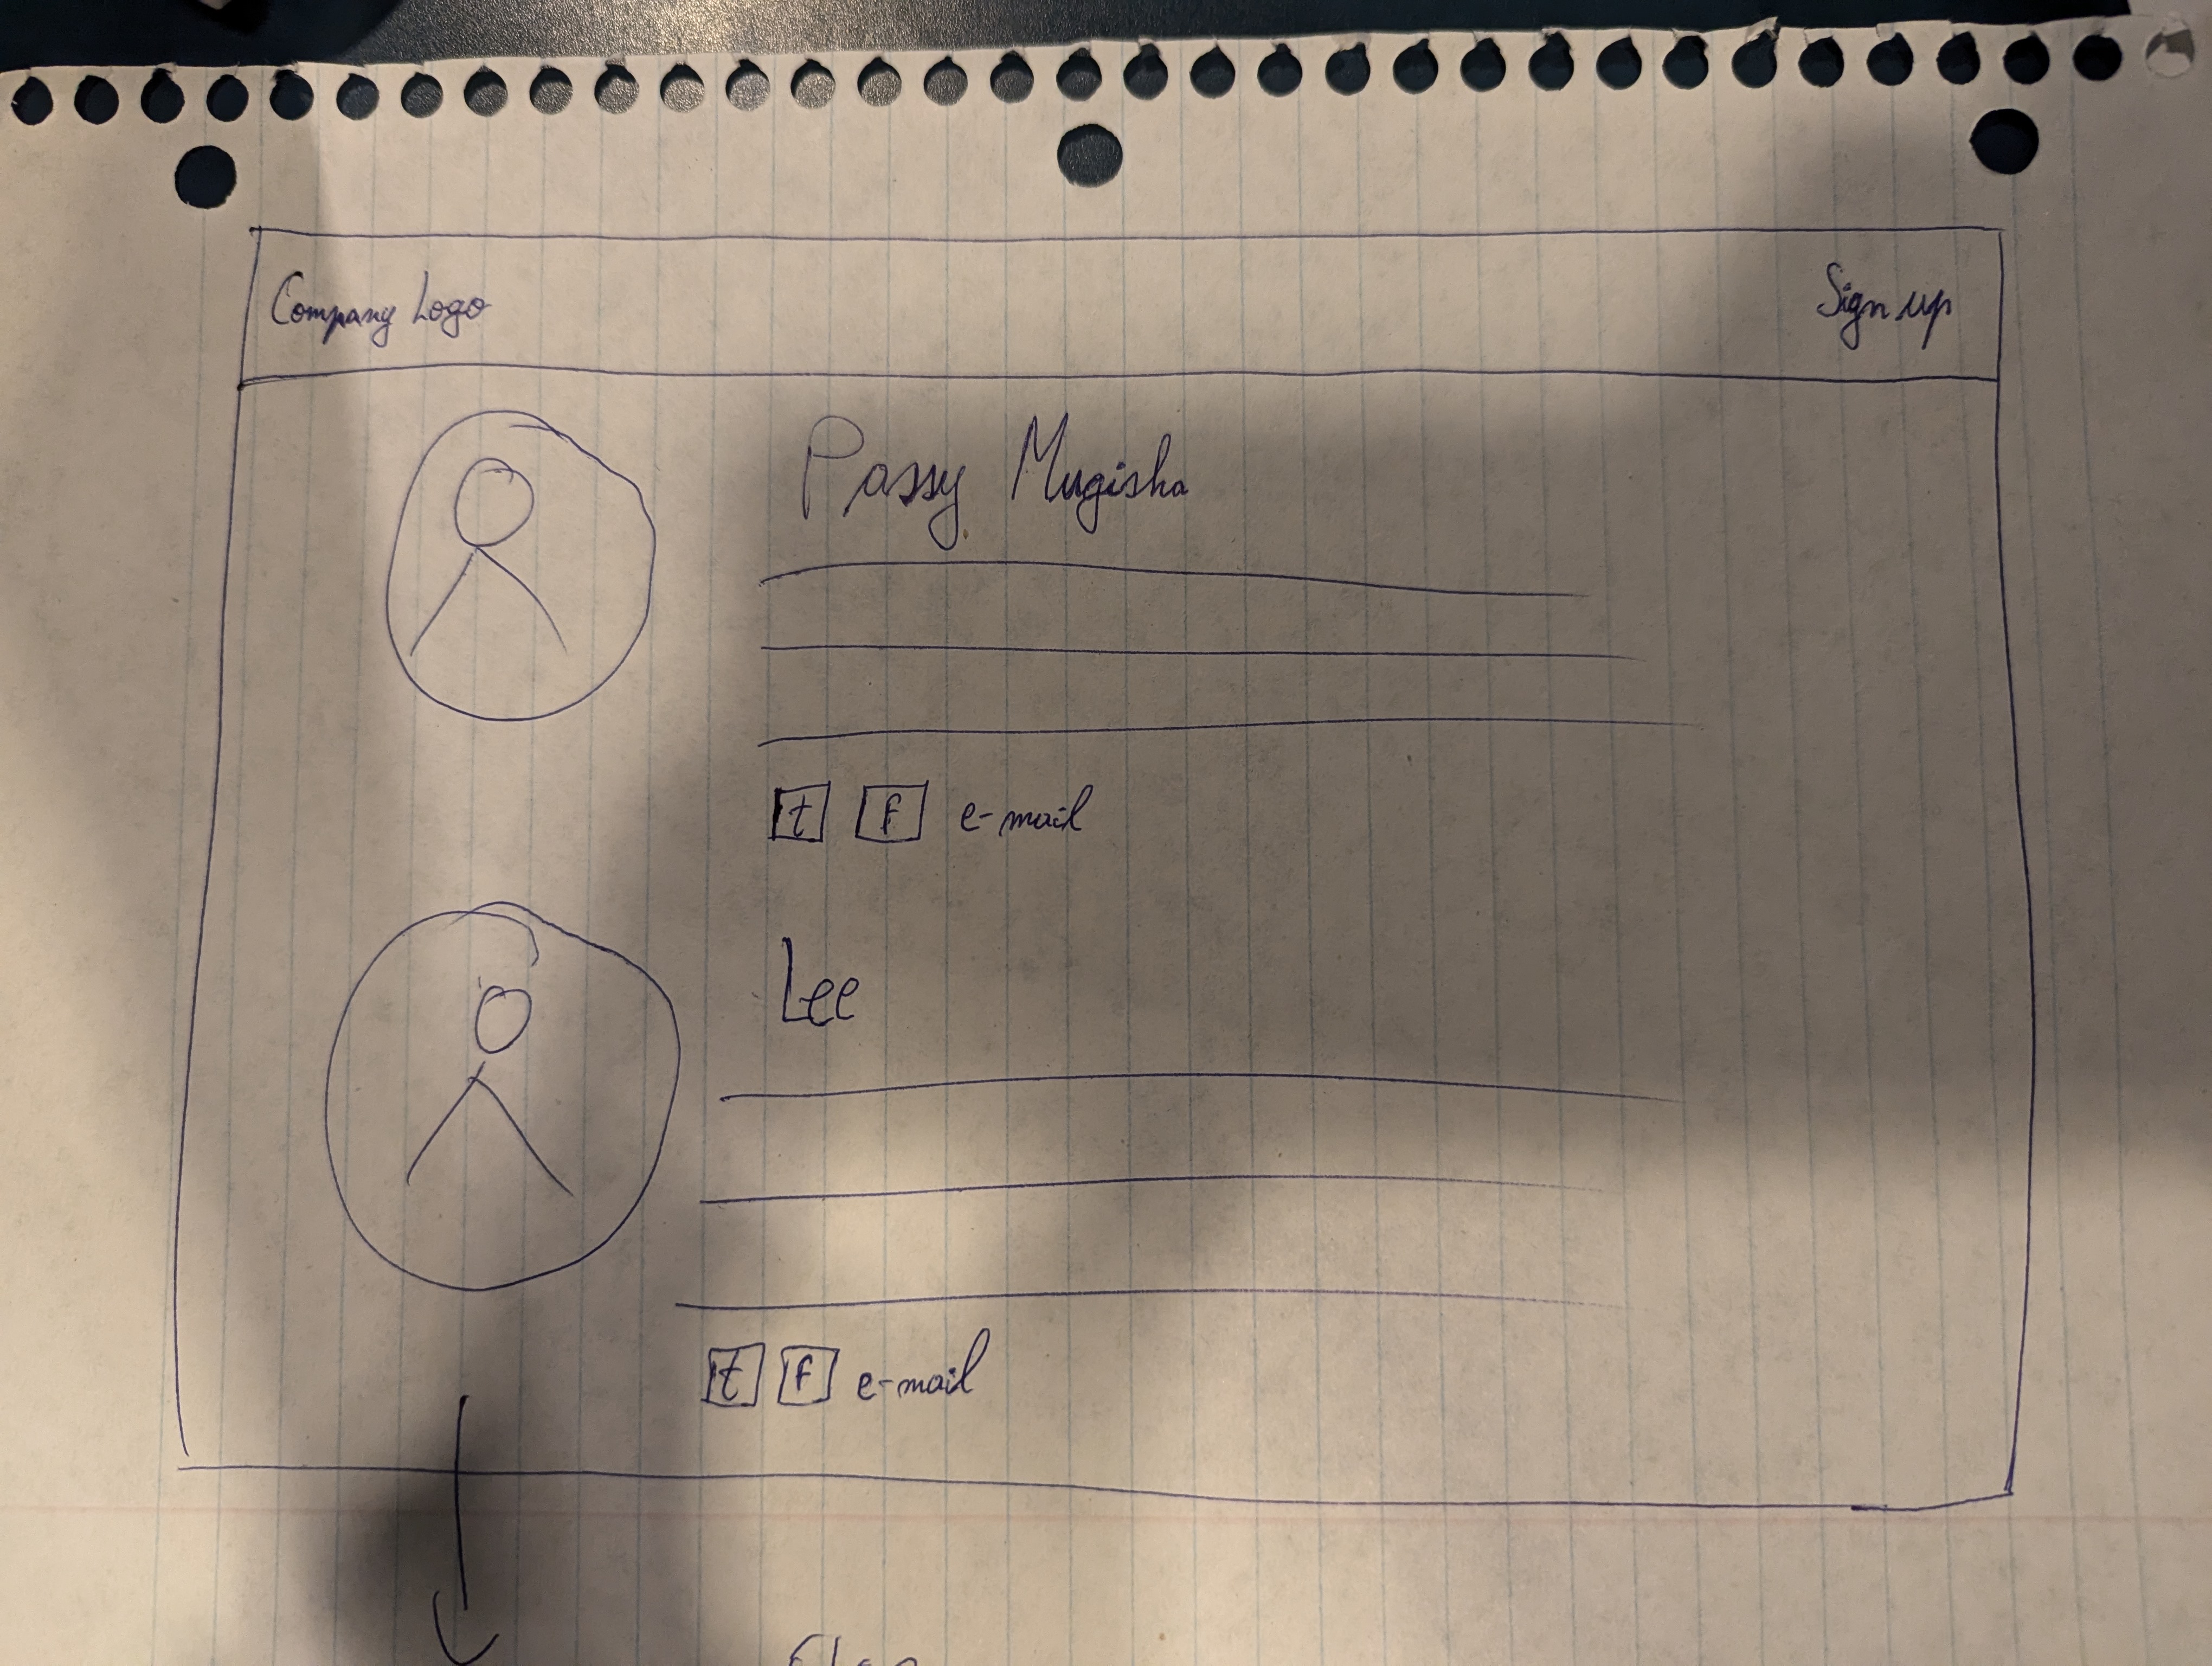 Company Logo
Sign up
Passy Mugisha
t f e-mail
Lee
t f e-mail